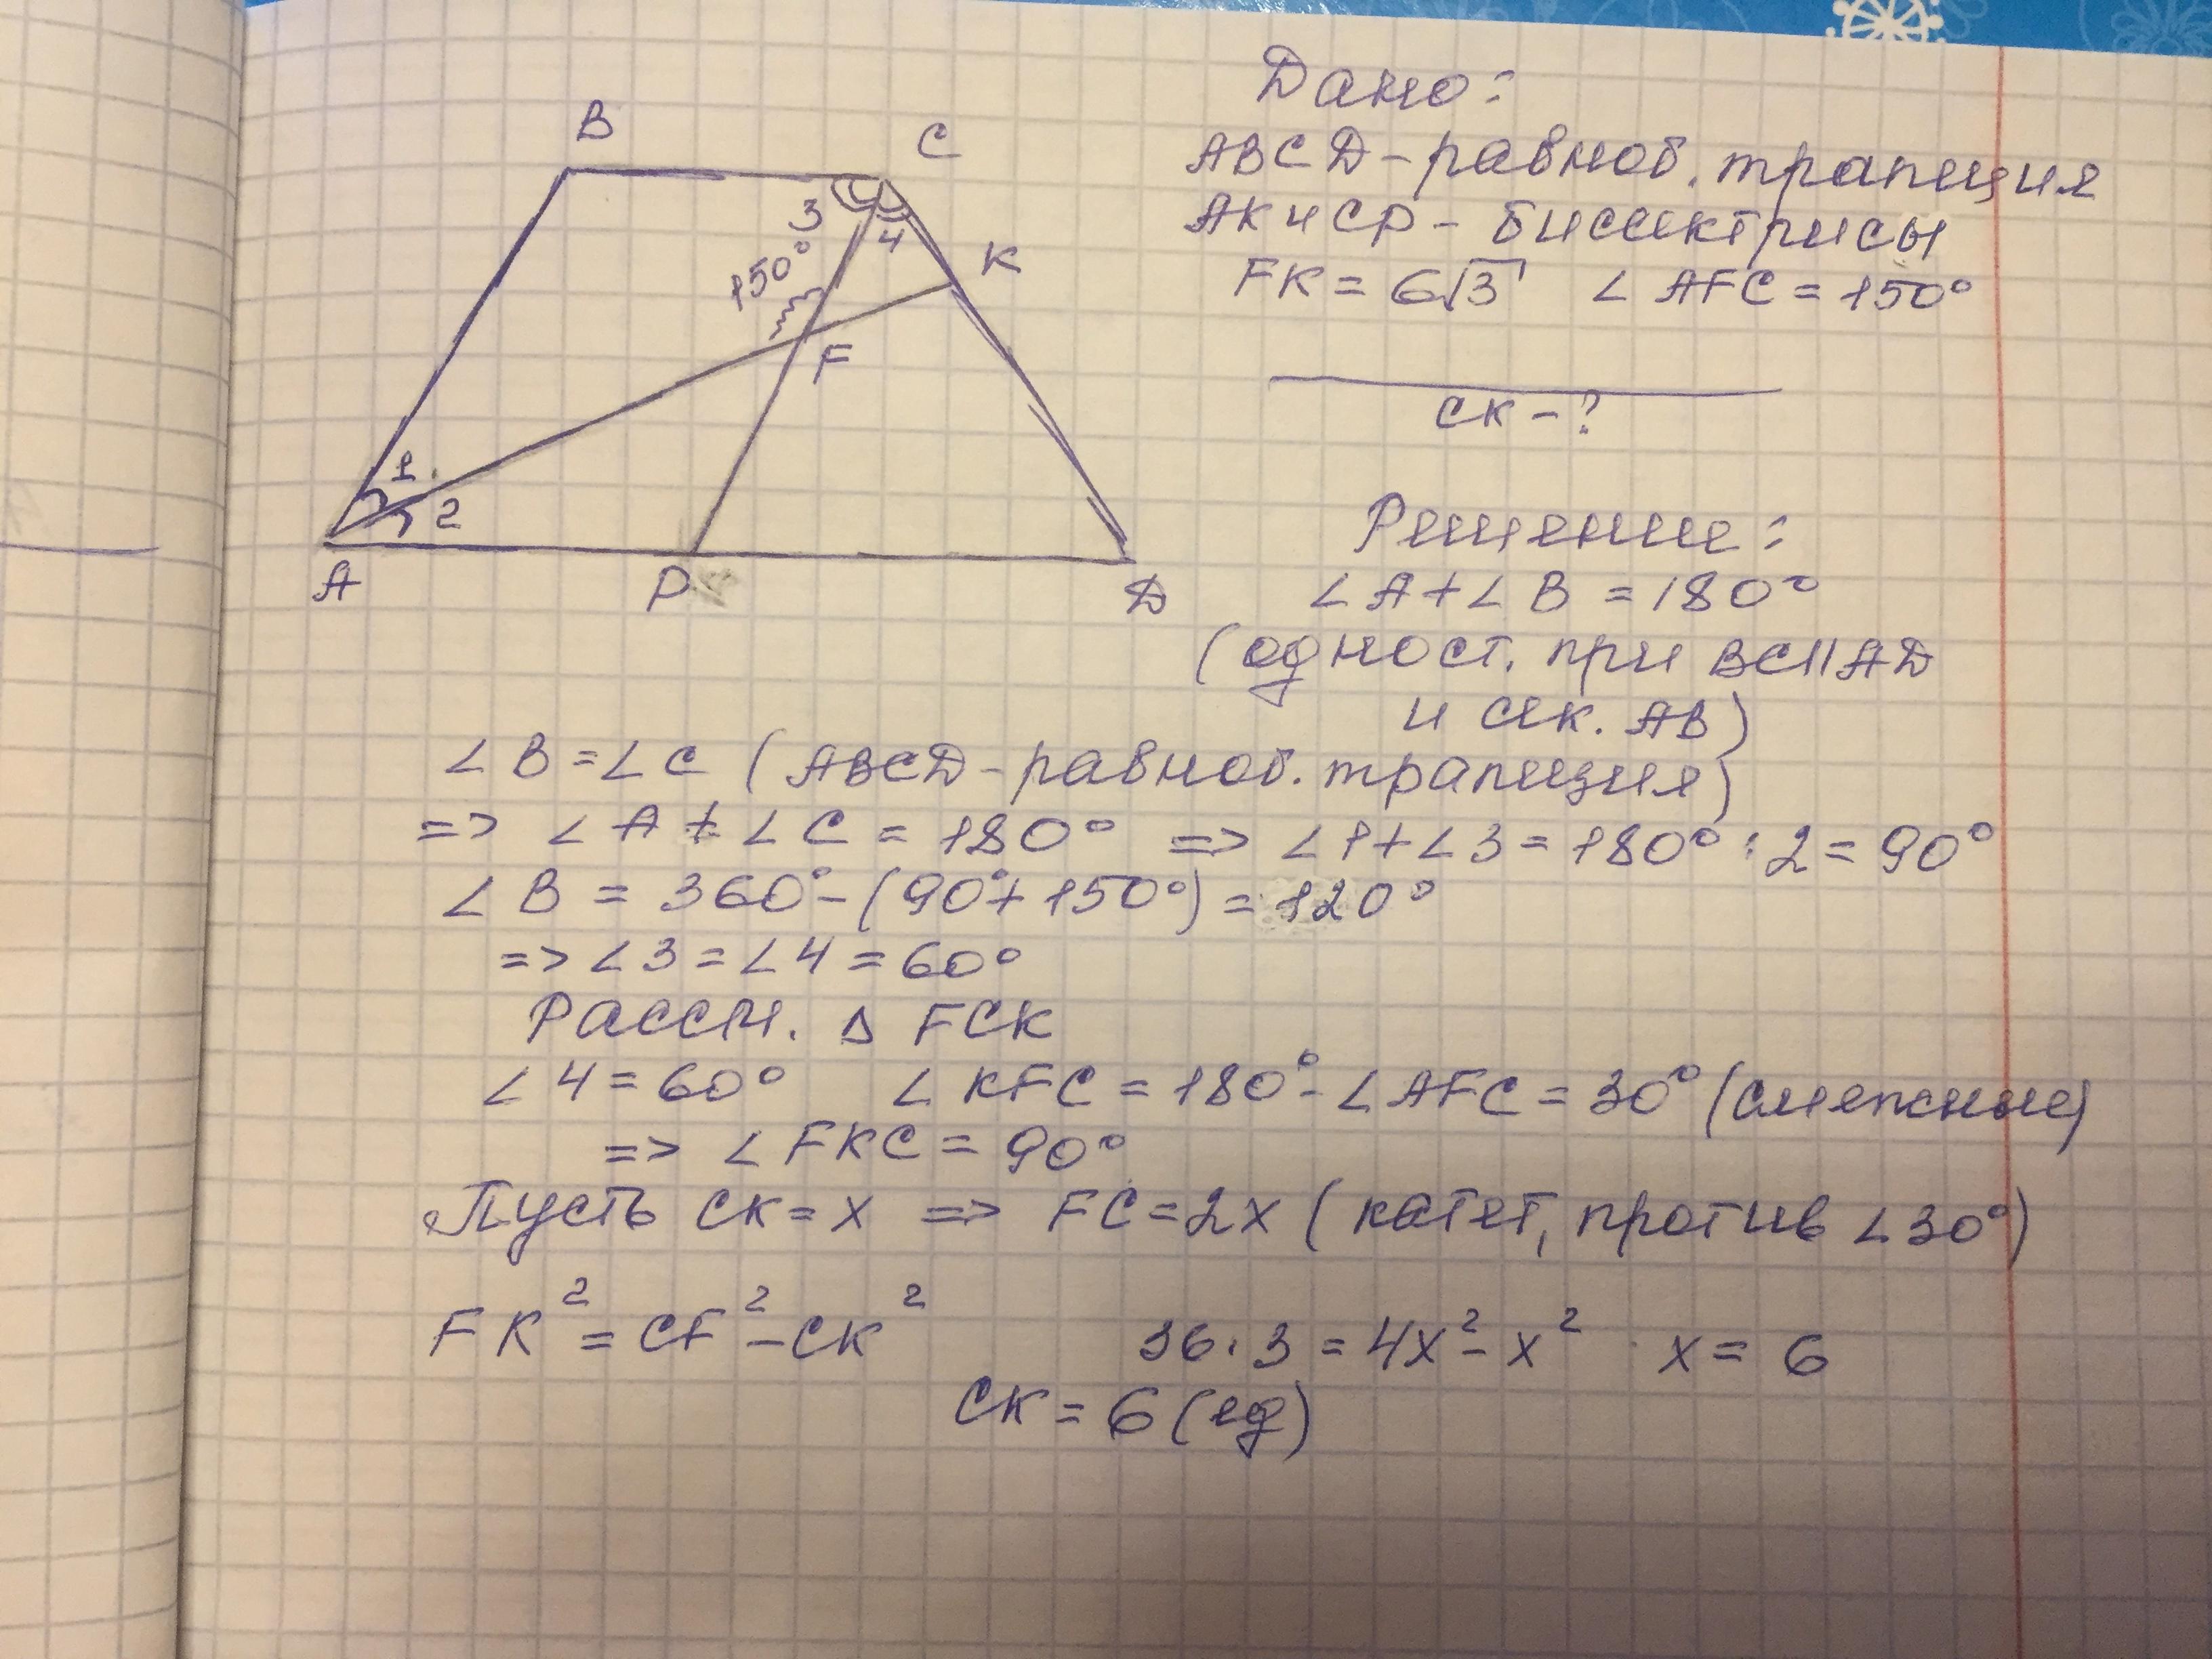 B
C
3
4
150°
K
F
1
2
A
P
D
Дано:
ABCD - равноб. трапеция
AK и CP - биссектрисы
FK = 6√3   ∠ AFC = 150°
CK - ?
Решение:
∠ A + ∠ B = 180°
(одност. при BC || AD
и сек. AB)
∠ B = ∠ C (ABCD - равноб. трапеция)
=> ∠ A + ∠ C = 180° => ∠ 1 + ∠ 3 = 180° : 2 = 90°
∠ B = 360° - (90° + 150°) = 120°
=> ∠ 3 = ∠ 4 = 60°
Рассм. Δ FCK
∠ 4 = 60°   ∠ KFC = 180° - ∠ AFC = 30° (смежные)
=> ∠ FKC = 90°
Пусть CK = x => FC = 2x (катет, против ∠ 30°)
FK² = CF² - CK²   36 · 3 = 4x² - x²   x = 6
CK = 6 (ед)